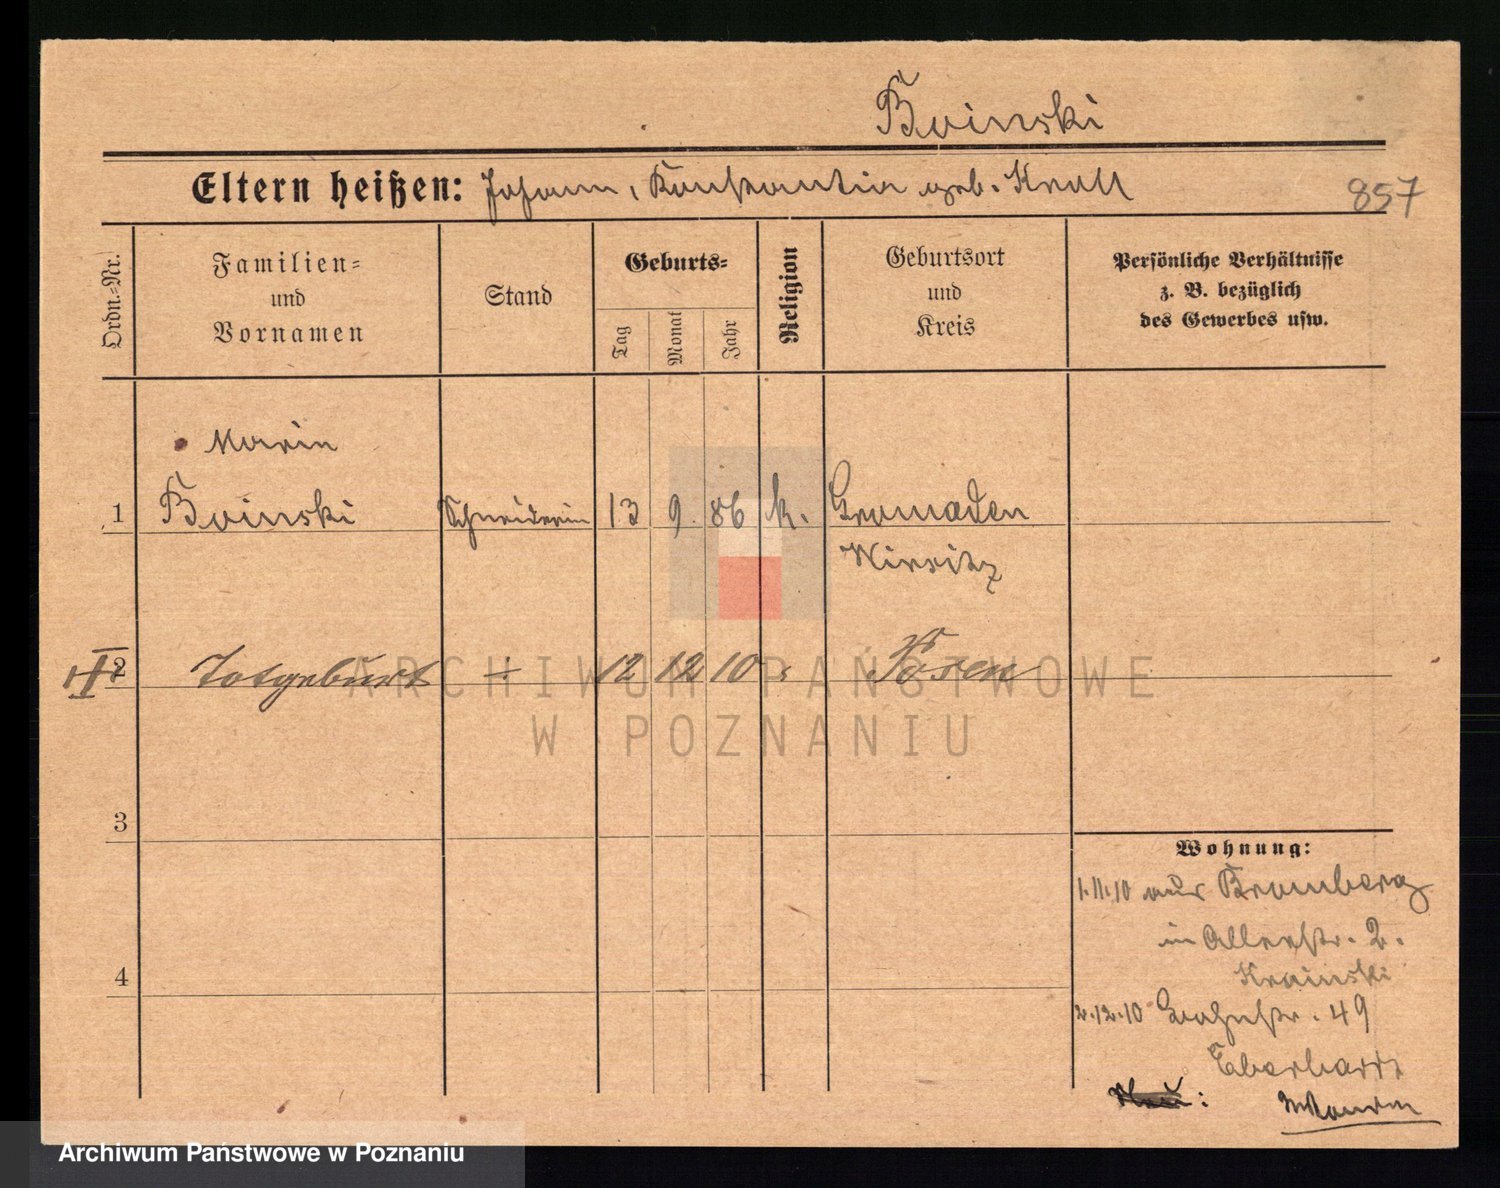 Boinski
Eltern heißen: Johann, Konstantia geb. Krall
857
Ordn.-Nr.
Familien-
und
Vornamen
Stand
Geburts-
Tag
Monat
Jahr
Religion
Geburtsort
und
Kreis
Persönliche Verhältnisse
z. B. bezüglich
des Gewerbes usw.
Marie
1 Boinski Schneiderin 13 9 86 k. Gromaden
Wirsitz
2 Totgeburt ÷ 12 12 10 Posen
ARCHIWUM PAŃSTWOWE
W POZNANIU
3
Wohnung:
1.11.10 aus Bromberg
in Allerstr. 2.
Krainski
4
2.12.10 49
Eberhardt
Archiwum Państwowe w Poznaniu